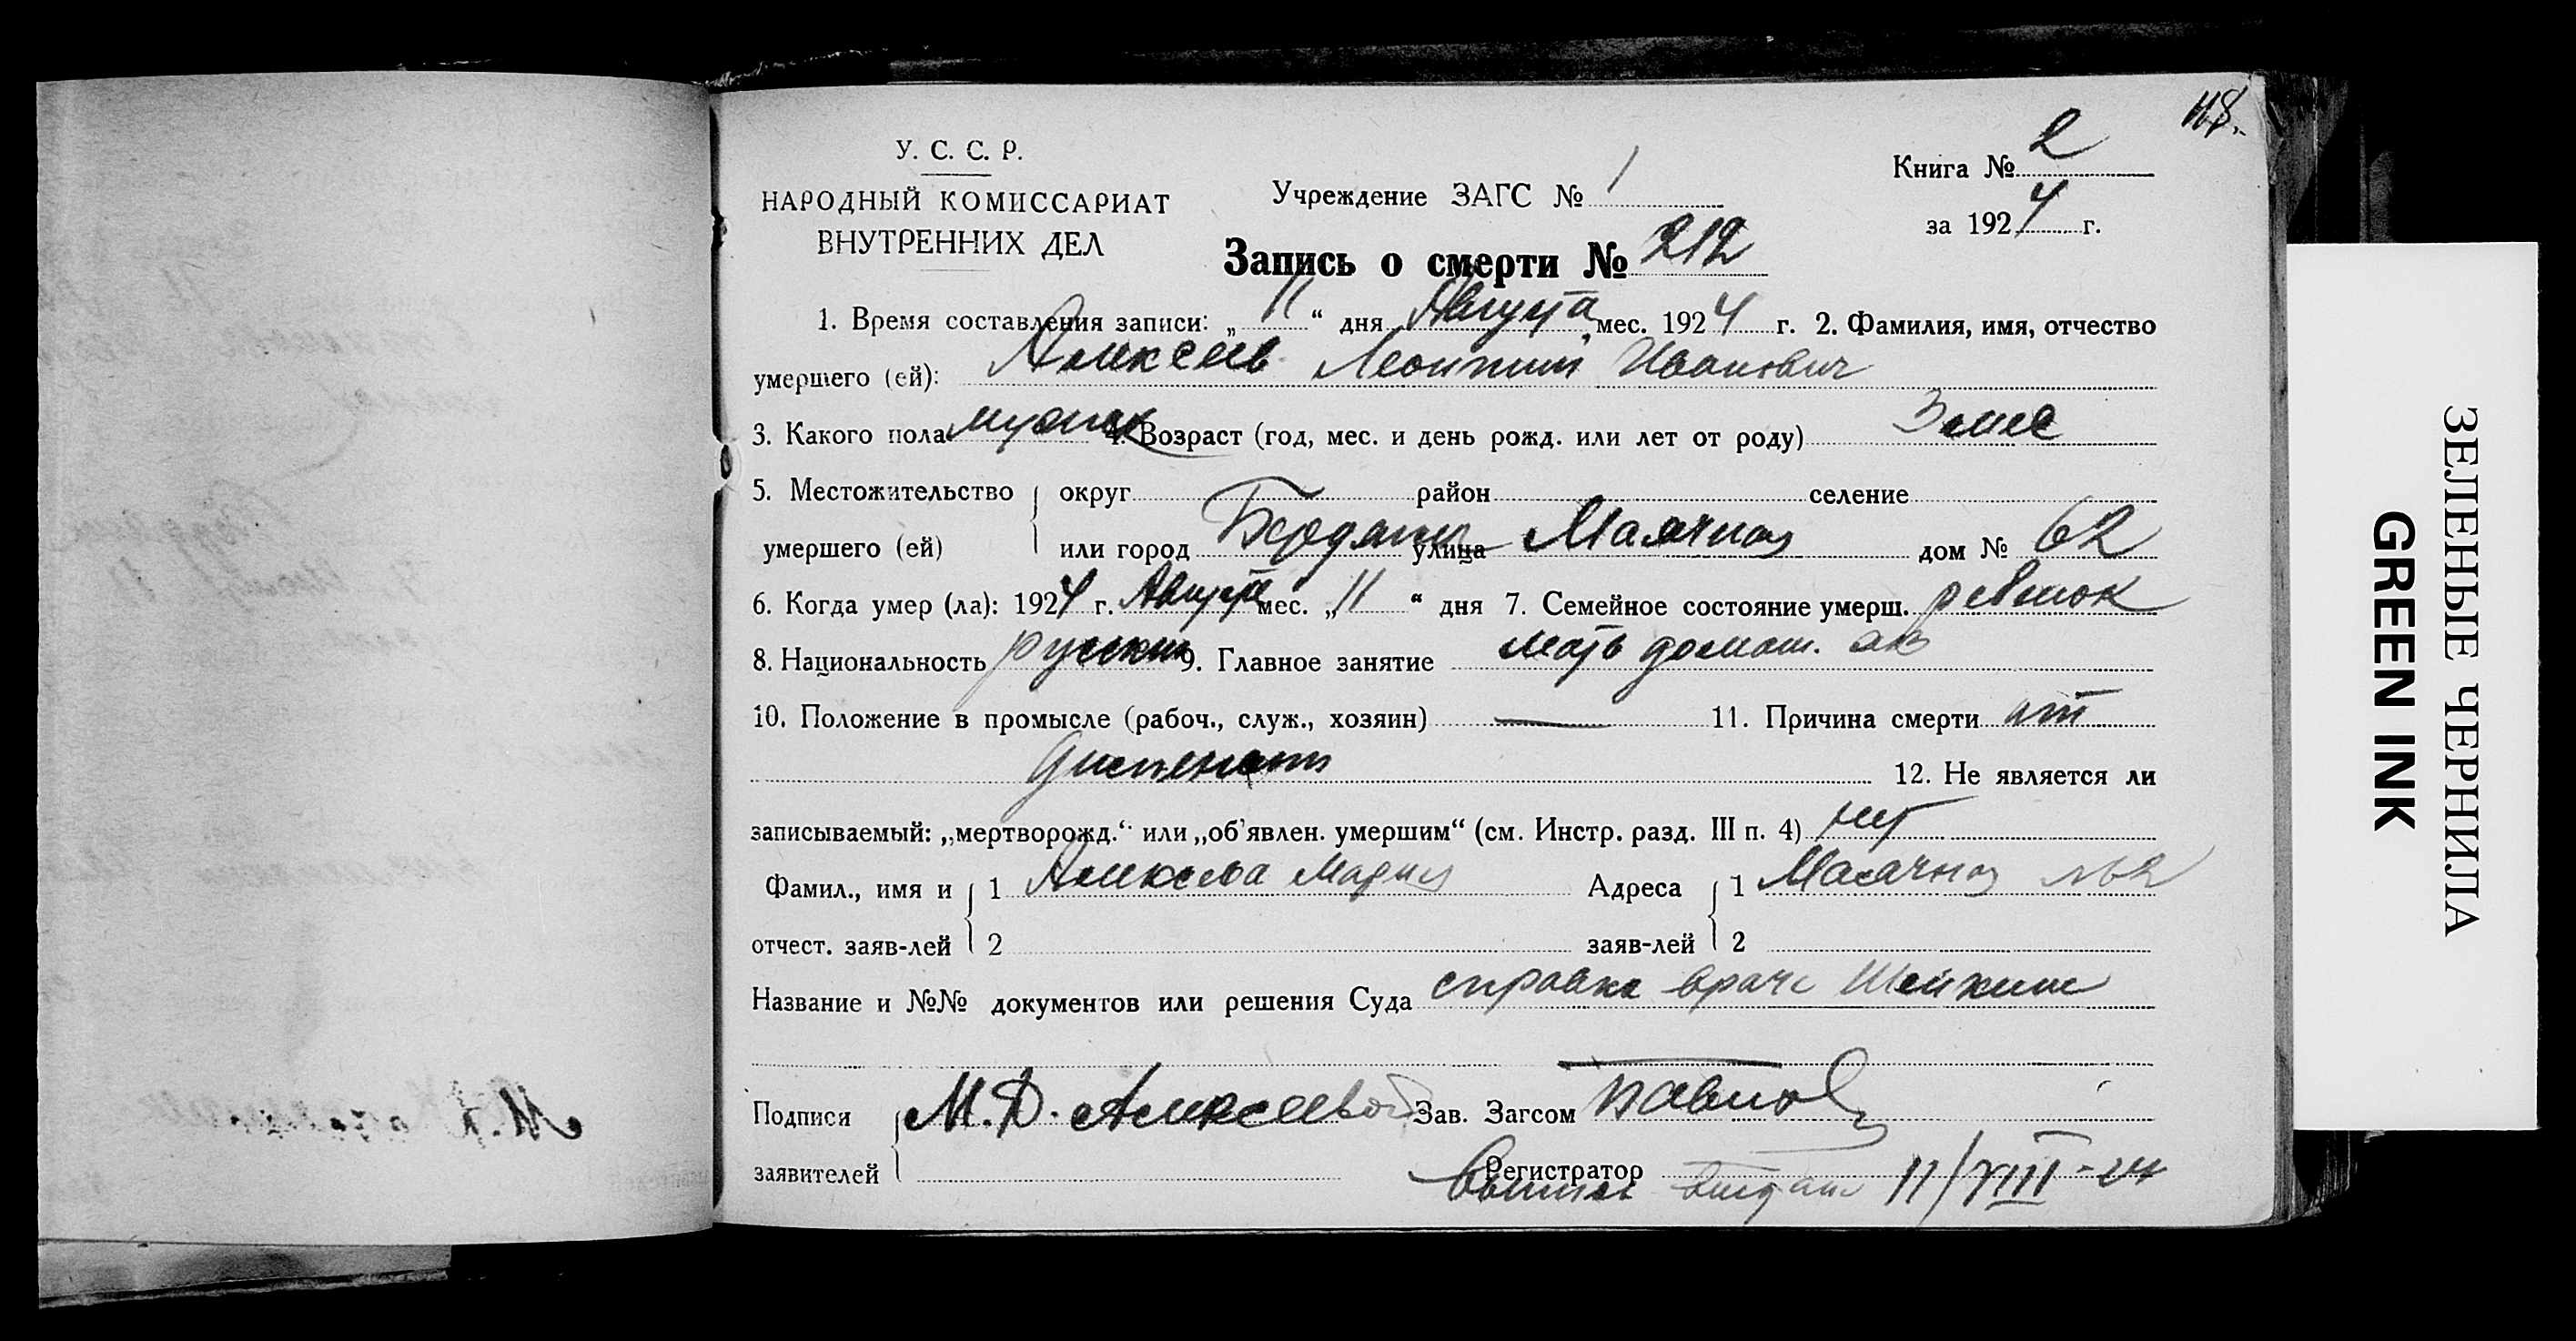 118.
У. С. С. Р.
НАРОДНЫЙ КОМИССАРИАТ
ВНУТРЕННИХ ДЕЛ
Учреждение ЗАГС № 1
Книга № 2
за 1924 г.
Запись о смерти № 212
1. Время составления записи: „ 11 “ дня Августа мес. 1924 г. 2. Фамилия, имя, отчество
умершего (ей): Алексеев Леонтий Иванович
3. Какого пола мужск 4. Возраст (год, мес. и день рожд. или лет от роду) 3 мес
5. Местожительство округ район селение
умершего (ей) или город Бердянск улица Маячная дом № 62
6. Когда умер (ла): 1924 г. Августа мес. „ 11 “ дня 7. Семейное состояние умерш. ребенок
8. Национальность русский 9. Главное занятие мать домаш. хоз
10. Положение в промысле (рабоч., служ., хозяин) — 11. Причина смерти от
12. Не является ли
записываемый: „мертворожд.“ или „об’явлен. умершим“ (см. Инстр. разд. III п. 4) нет
Фамил., имя и 1 Алексеева Мария Адреса 1 Маячная № 62
отчест. заяв-лей 2 заяв-лей 2
Название и №№ документов или решения Суда справка врача
Подписи М. Д. Алексеевой Зав. Загсом
заявителей Регистратор
выпись выдана 11/VIII-24
ЗЕЛЕНЫЕ ЧЕРНИЛА
GREEN INK